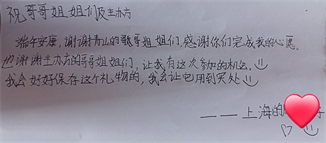 祝哥哥姐姐们及主办方
端午安康，谢谢青山的歌哥姐姐们，感谢你们完成我的心愿。
也谢谢主办方的哥哥姐姐们，让我有这次参加的机会。
我会好好保存这个礼物的，我会让它用到实处
——上海的